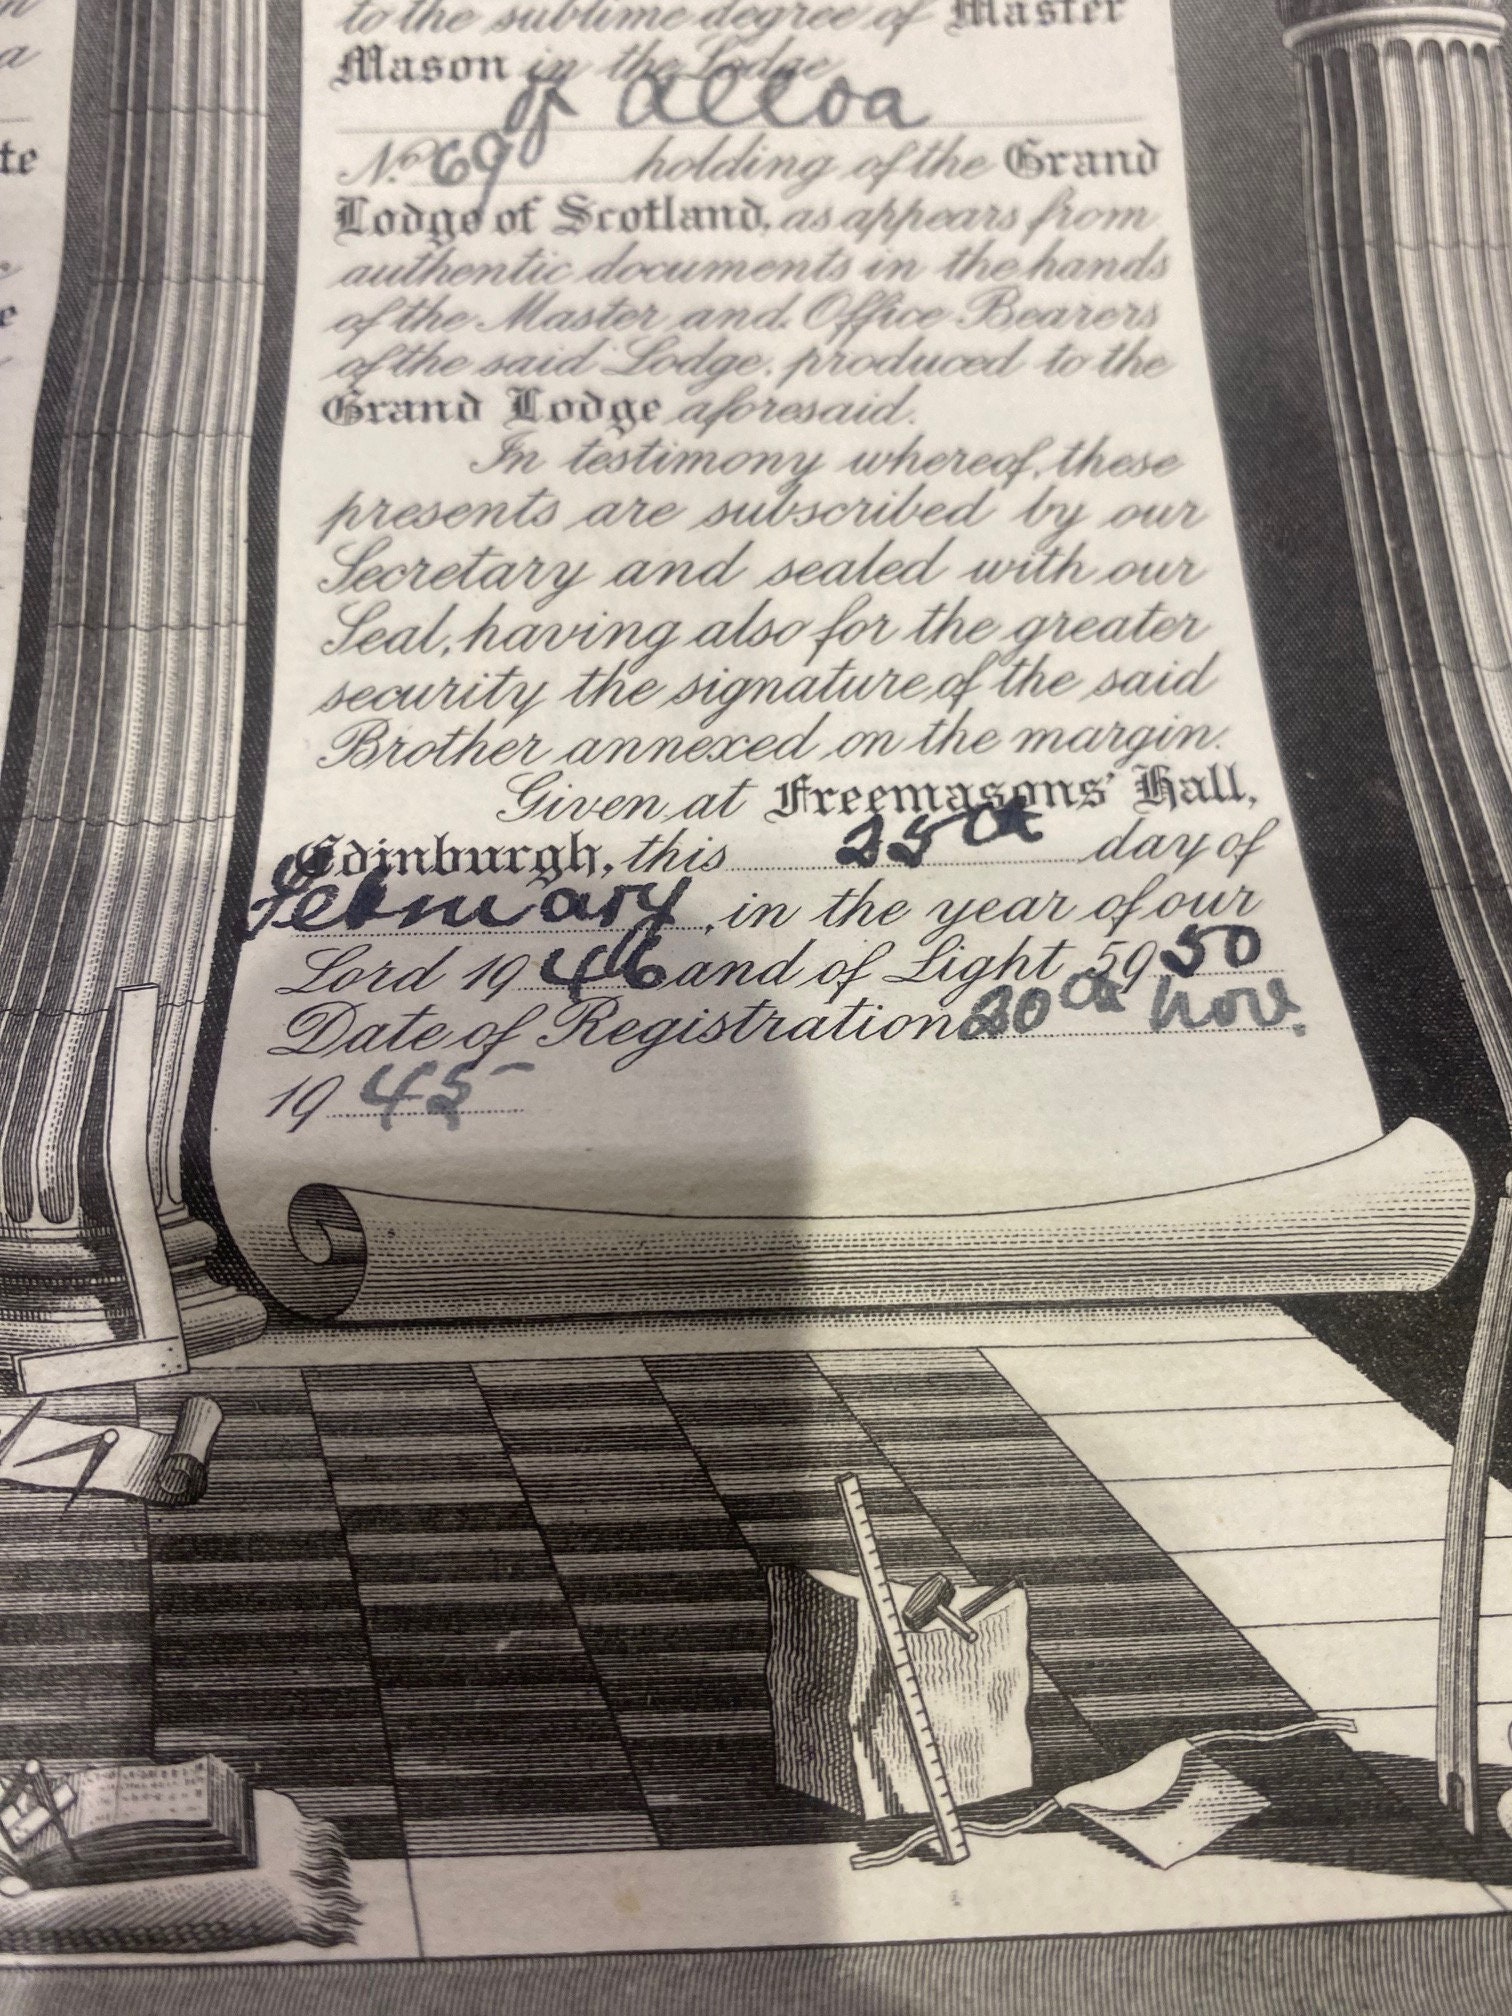 to the sublime degree of Master
Mason in the Lodge
of Alloa
No. 69 holding of the Grand
Lodge of Scotland, as appears from
authentic documents in the hands
of the Master and Office Bearers
of the said Lodge, produced to the
Grand Lodge aforesaid.
In testimony whereof, these
presents are subscribed by our
Secretary and sealed with our
Seal, having also for the greater
security the signature of the said
Brother annexed on the margin.
Given at Freemasons' Hall,
Edinburgh, this 25th day of
February, in the year of our
Lord 1946 and of Light 5950
Date of Registration 20th Nov.
1945